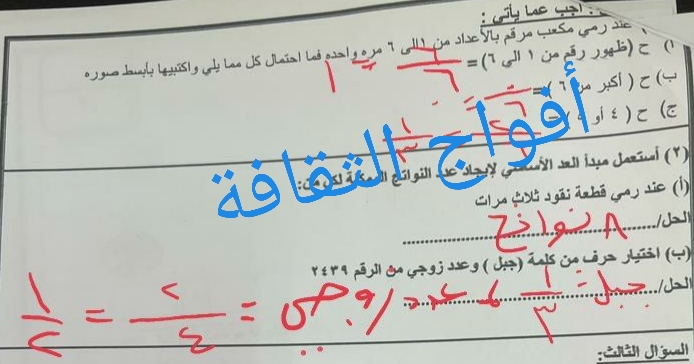 : أجب عما يأتي :
عند رمي مكعب مرقم بالأعداد من ١ الى ٦ مره واحده فما احتمال كل مما يلي واكتبيها بأبسط صوره
أ) ح (ظهور رقم من ١ الى ٦) = ٦/٦ = ١
ب) ح ( أكبر من ٦ ) = ٠/٦ = ٠
ج) ح ( ٤ أو = ٢/٦ = ١/٣
أفواج الثقافة
(٢) أستعمل مبدأ العد الأساسي لإيجاد عدد النواتج الممكنة لكل من:
(أ) عند رمي قطعة نقود ثلاث مرات
الحل/ ٨ نواتج
(ب) اختيار حرف من كلمة (جبل ) وعدد زوجي من الرقم ٢٤٣٩
الحل/ جبل = ١/٣ ، عدد زوجي = ٢/٤ = ١/٢
السؤال الثالث: